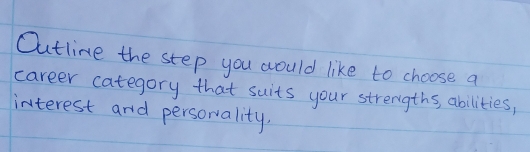 Outline the step you would like to choose a
career category that suits your strengths, abilities,
interest and personality.